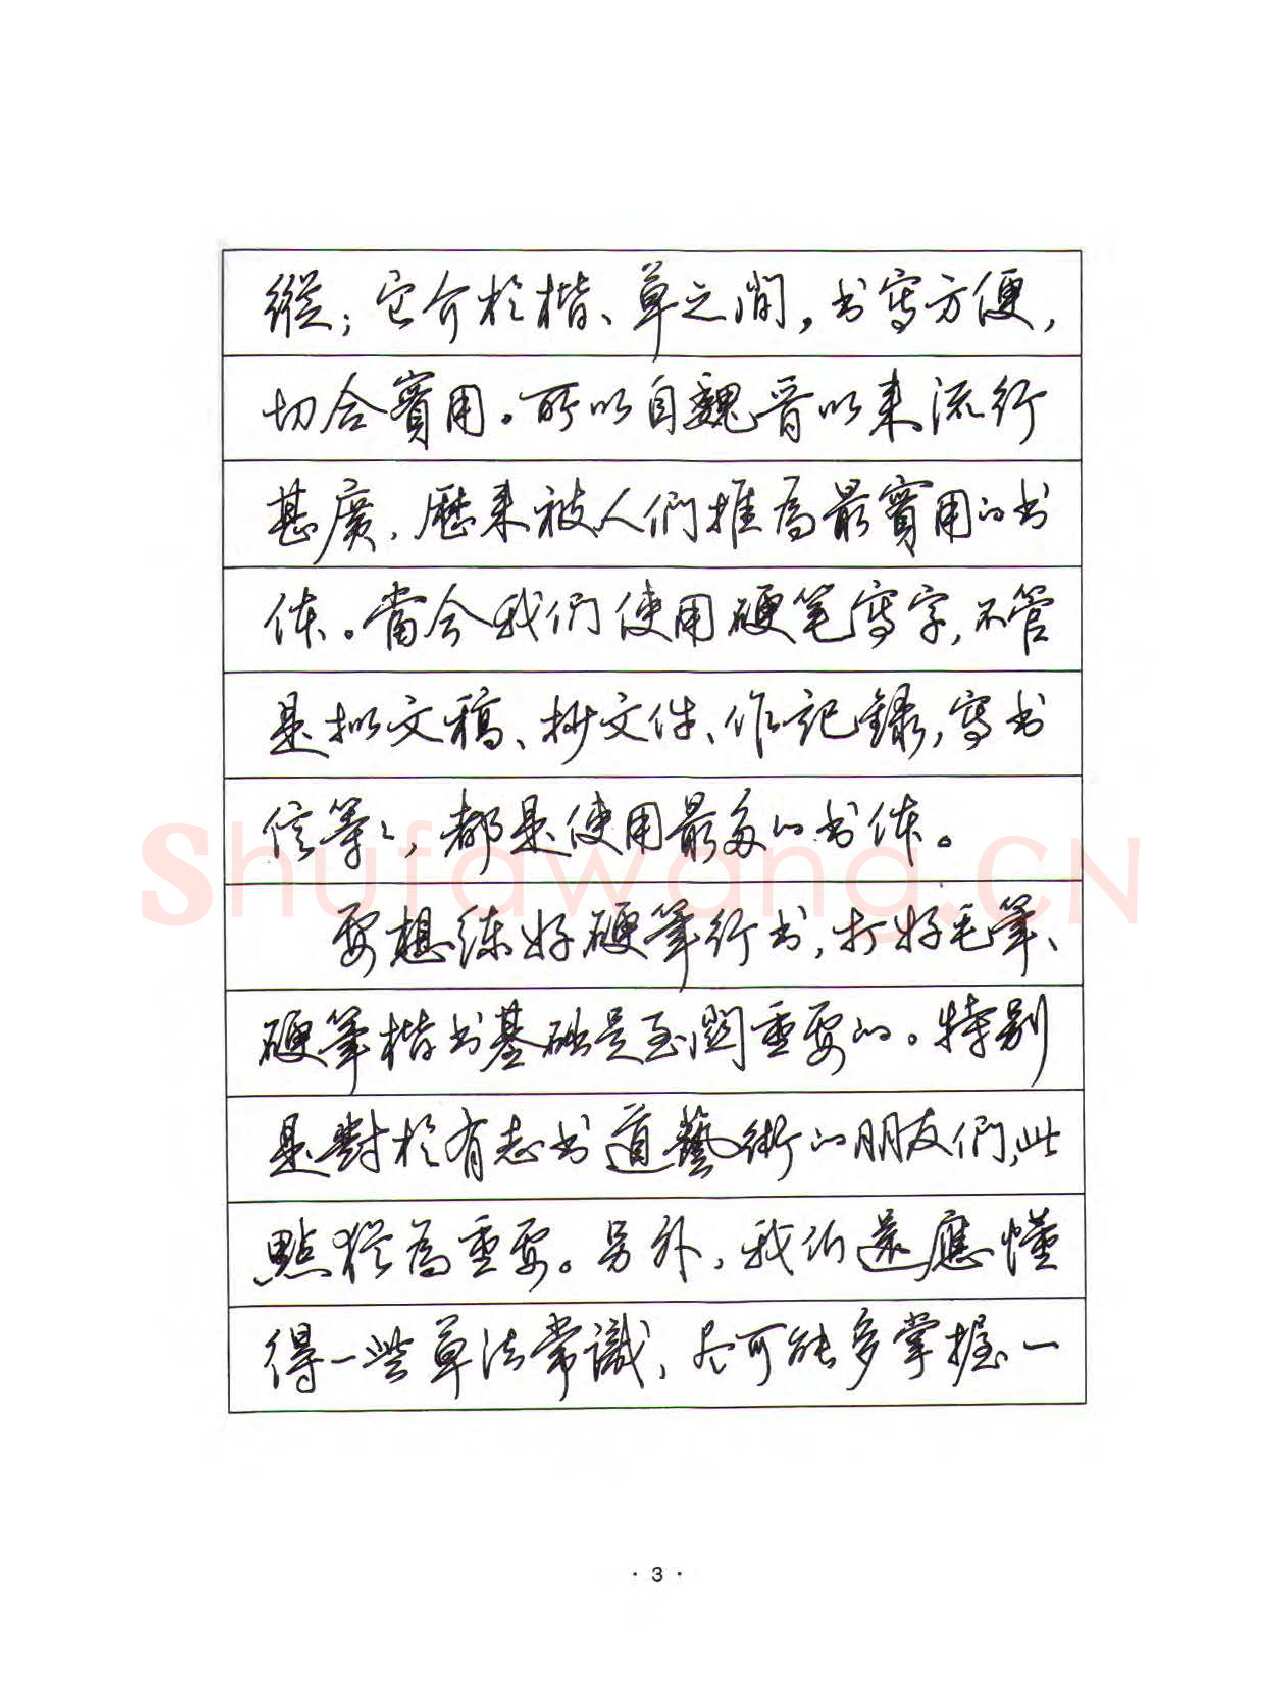 縱；它介於楷、草之間，书寫方便，
切合實用。所以自魏晋以来流行
甚廣，歷来被人們推為最實用的书
体。當今我們使用硬笔寫字，不管
是拟文稿、抄文件、作記録，寫书
信等等，都是使用最多的书体。
要想练好硬筆行书，打好毛筆、
硬筆楷书基础是至關重要的。特别
是對於有志书道藝術的朋友們，此
點猶為重要。另外，我们還應懂
得一些草法常識，尽可能多掌握一
Shufawang.CN
· 3 ·